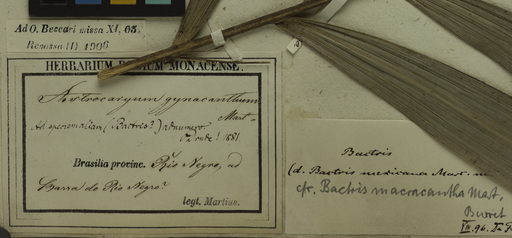 Ad O. Beccari missa XI, 05.
Remissa (1) 1906
HERBARIUM REGIUM MONACENSE.
Astrocaryum gynacanthum
Mart.
Ad specim aliam (Bactris?)
! 1881.
Brasilia provinc. Rio Negro, ad
Barra do Rio Negro?
legt. Martius.
Bactris
(d. Bactris mexicana Mart.
cfr. Bactris macracantha Mart.
Burret